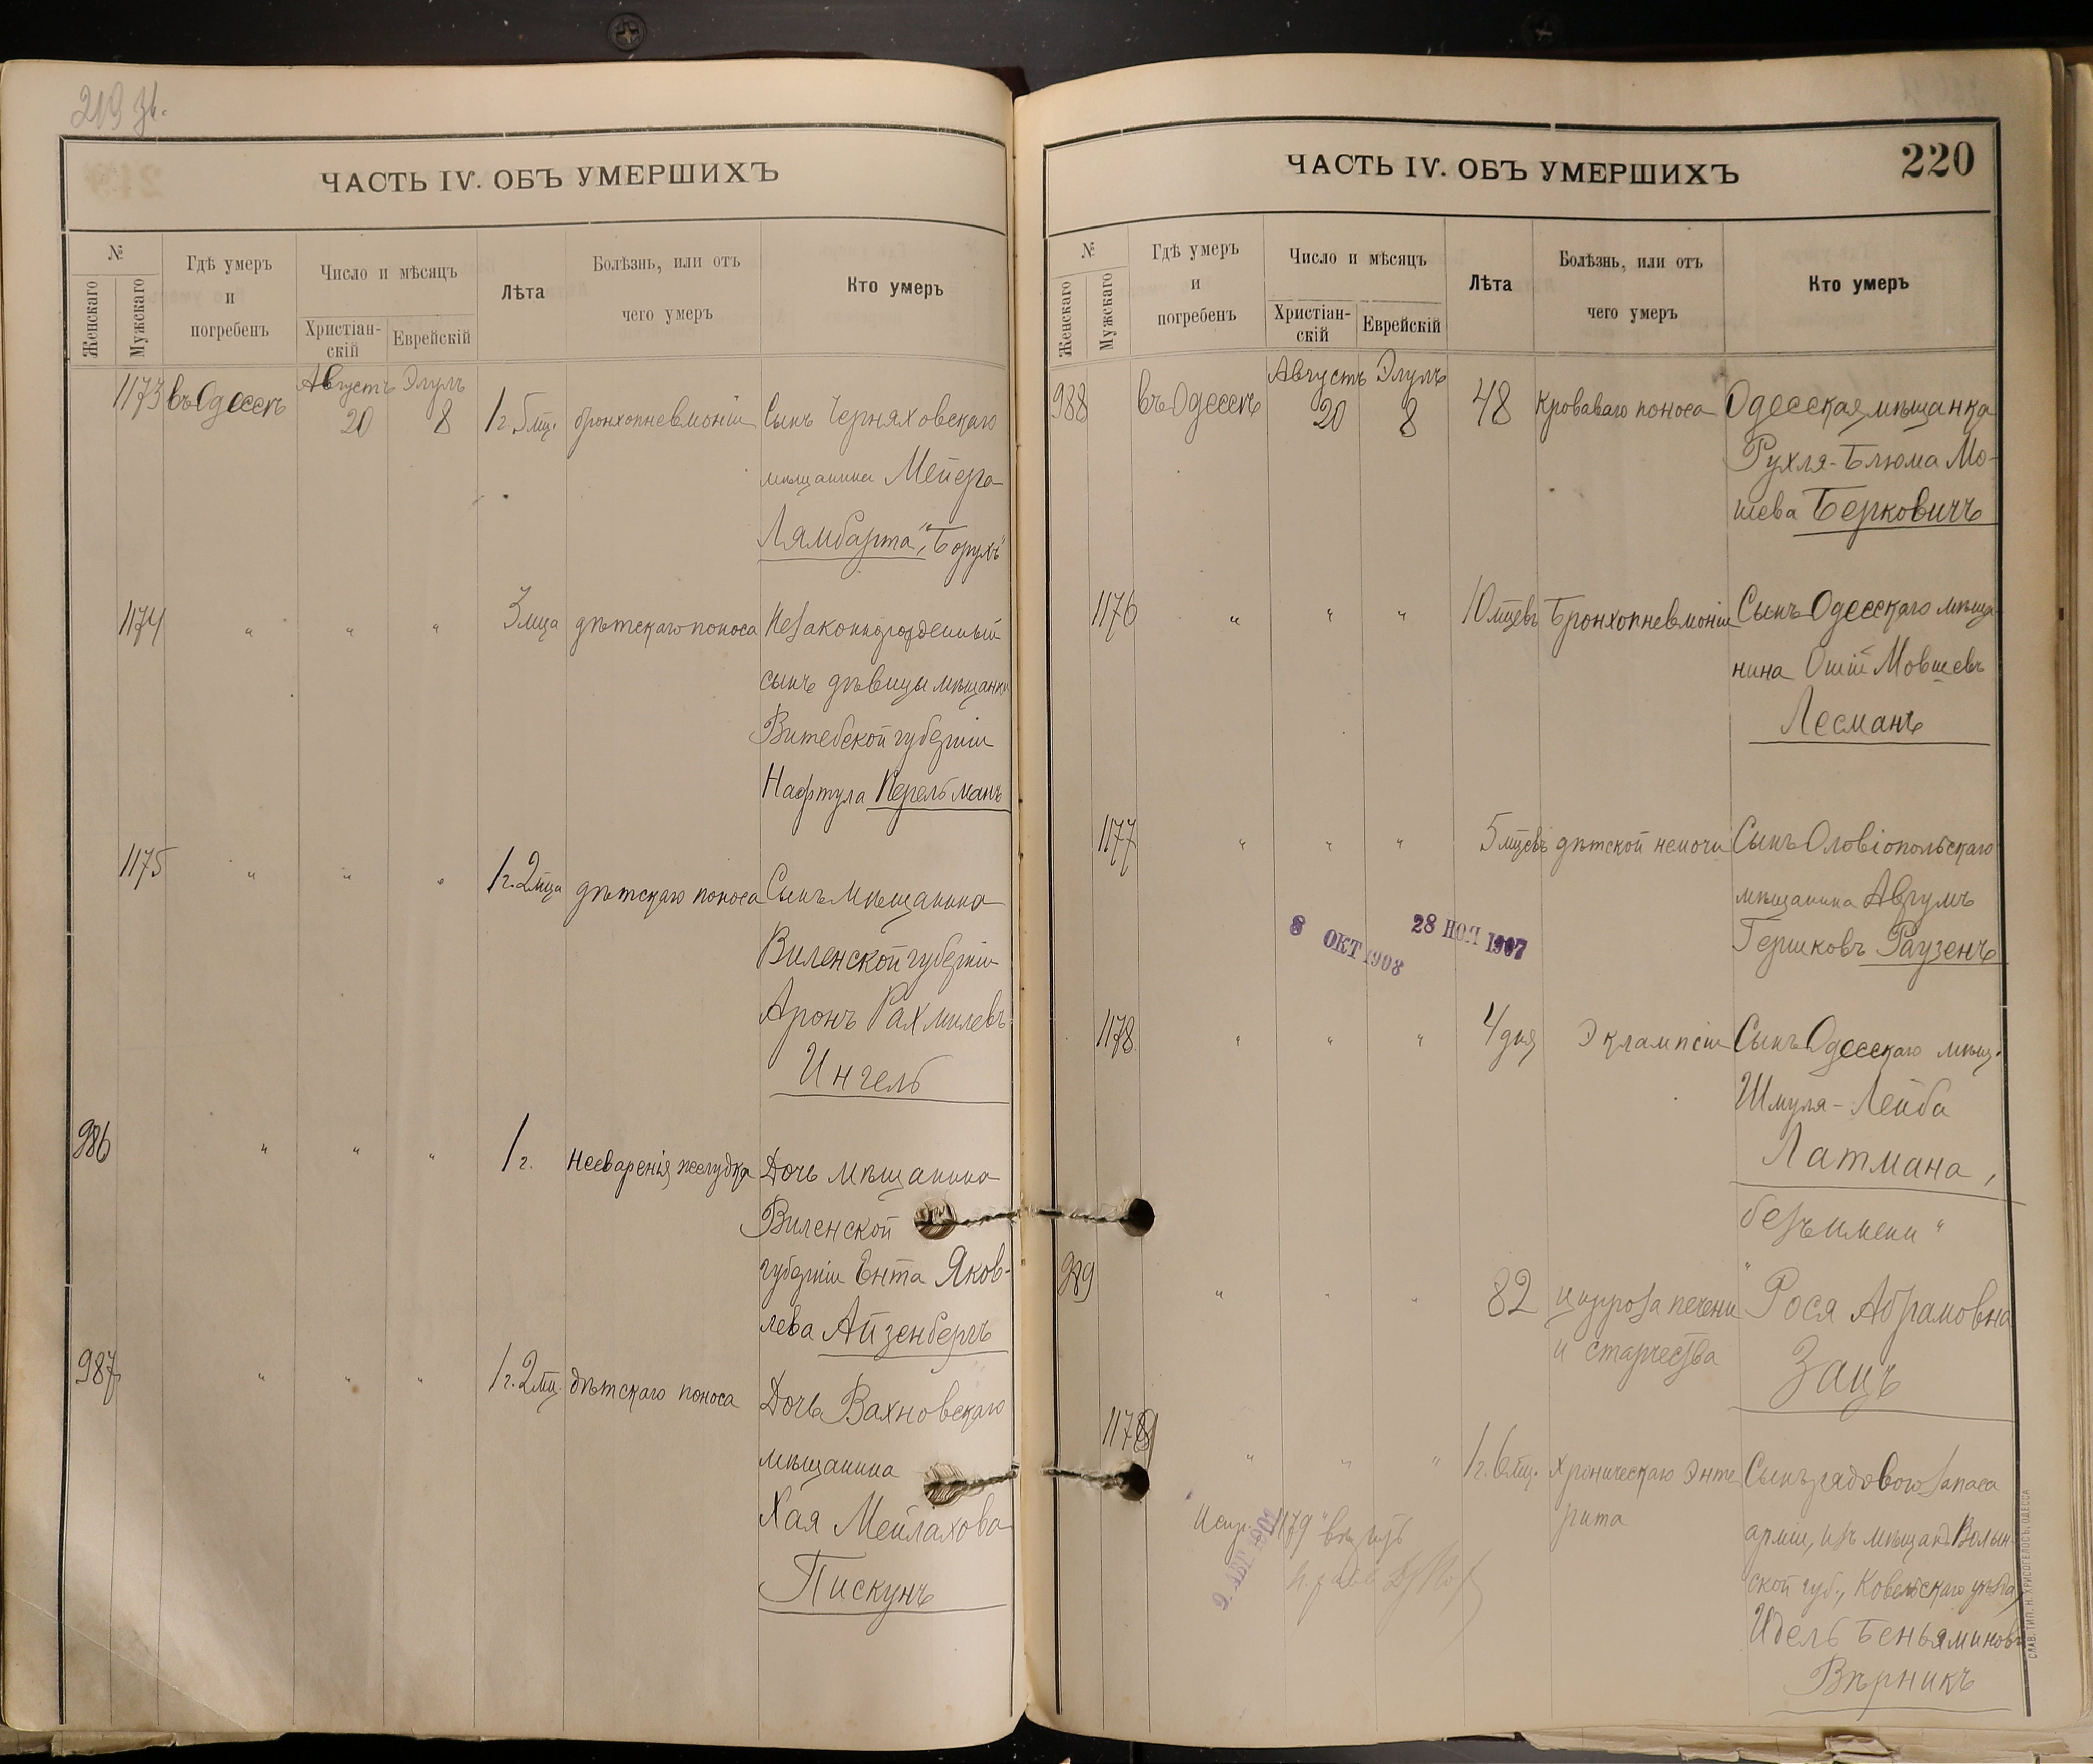 219 зв.
ЧАСТЬ IV. ОБЪ УМЕРШИХЪ
№
Женскаго
Мужскаго
Гдѣ умеръ
и
погребенъ
Число и мѣсяцъ
Христіан-
скій
Еврейскій
Лѣта
Болѣзнь, или отъ
чего умеръ
Кто умеръ
1173 въ Одессѣ Августъ 20 Элулъ 8 1 г. 5 мц. бронхопневмоніи Сынъ Черняховскаго
мѣщанина Мейера
Лямбарта, "Борухъ"
1174 " " " 3 мца дѣтскаго поноса Незаконнорожденный
сынъ дѣвицы мѣщанки
Витебской губерніи
Нафтула Перельманъ
1175 " " " 1 г. 2 мца дѣтскаго поноса Сынъ мѣщанина
Виленской губерніи
Аронъ Рахмилевъ
Ингель
986 " " " 1 г. Несваренія желудка Дочь мѣщанина
Виленской
губерніи Ента Яков-
лева Айзенбергъ
987 " " " 1 г. 2 мц. дѣтскаго поноса Дочь Вахновскаго
мѣщанина
Хая Мейлахова
Пискунъ
ЧАСТЬ IV. ОБЪ УМЕРШИХЪ
220
№
Женскаго
Мужскаго
Гдѣ умеръ
и
погребенъ
Число и мѣсяцъ
Христіан-
скій
Еврейскій
Лѣта
Болѣзнь, или отъ
чего умеръ
Кто умеръ
988 въ Одессѣ Августъ 20 Элулъ 8 48 Кроваваго поноса Одесская мѣщанка
Рухля-Блюма Мо-
шева Берковичъ
1176 " " " 10 мцевъ Бронхопневмоніи Сынъ Одесскаго мѣща-
нина Ошій Мовшевъ
Лесманъ
1177 " " " 5 мцевъ дѣтской немочи Сынъ Оловіопольскаго
мѣщанина Аврумъ
Гершковъ Раузенъ
8 ОКТ 1908
28 НОЯ 1907
1178 " " " 4 дня Эклампсіи Сынъ Одесскаго мѣщ.
Шмуля-Лейба
Латмана,
"безъ имени"
989 " " " 82 цирроза печени Рося Абрамовна
и старчества
Зацъ
1179 " " " 1 г. 6 мц. хроническаго энте Сынъ рядового запаса
рита
арміи, изъ мѣщанъ Волын-
ской губ., Ковельскаго уѣзда,
Идель Беньяминовъ
Вѣрникъ
1179
СЛАВ. ТИП. Н. ХРИСОГЕЛОСЪ, ОДЕССА